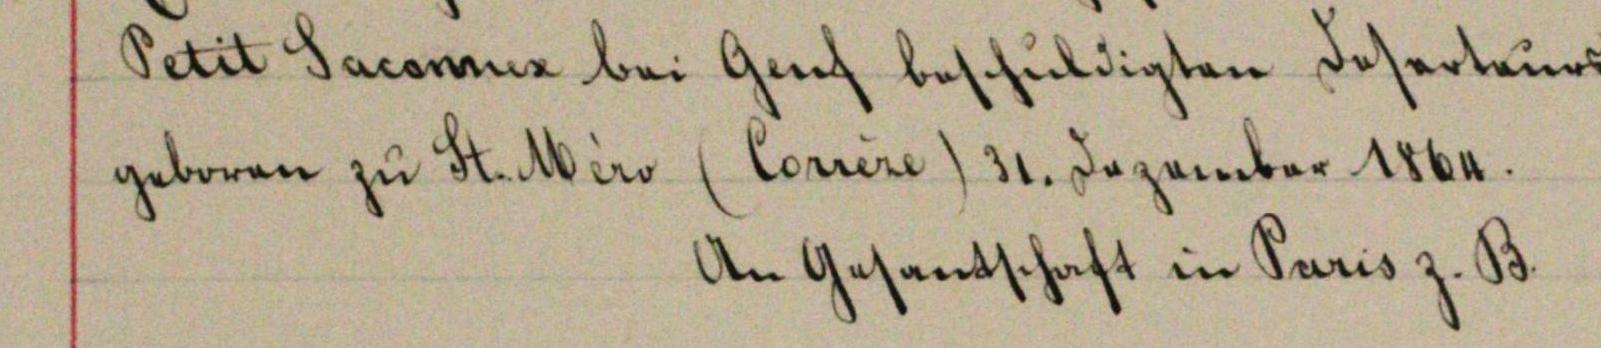 Petit Saconnex bei Genf beschuldigten Deserteurs
geboren zu St. Méro (Corrèze) 31. Dezember 1864.
An Gesantschaft in Paris z. B.